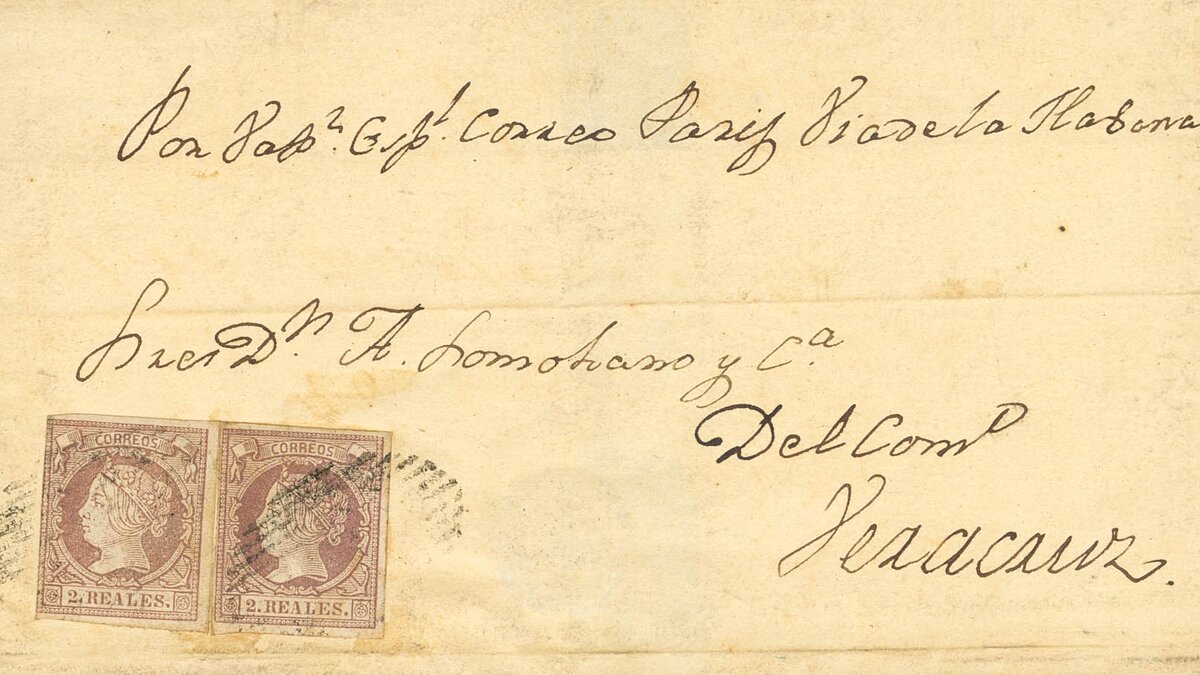 Por Vapʳ. Espˡ. Correo Paris Via de la Habana
Sres Dⁿ. A. Lomohano y Cᵃ
Del Comᵒ
Veracruz.
CORREOS
2. REALES.
CORREOS
2. REALES.